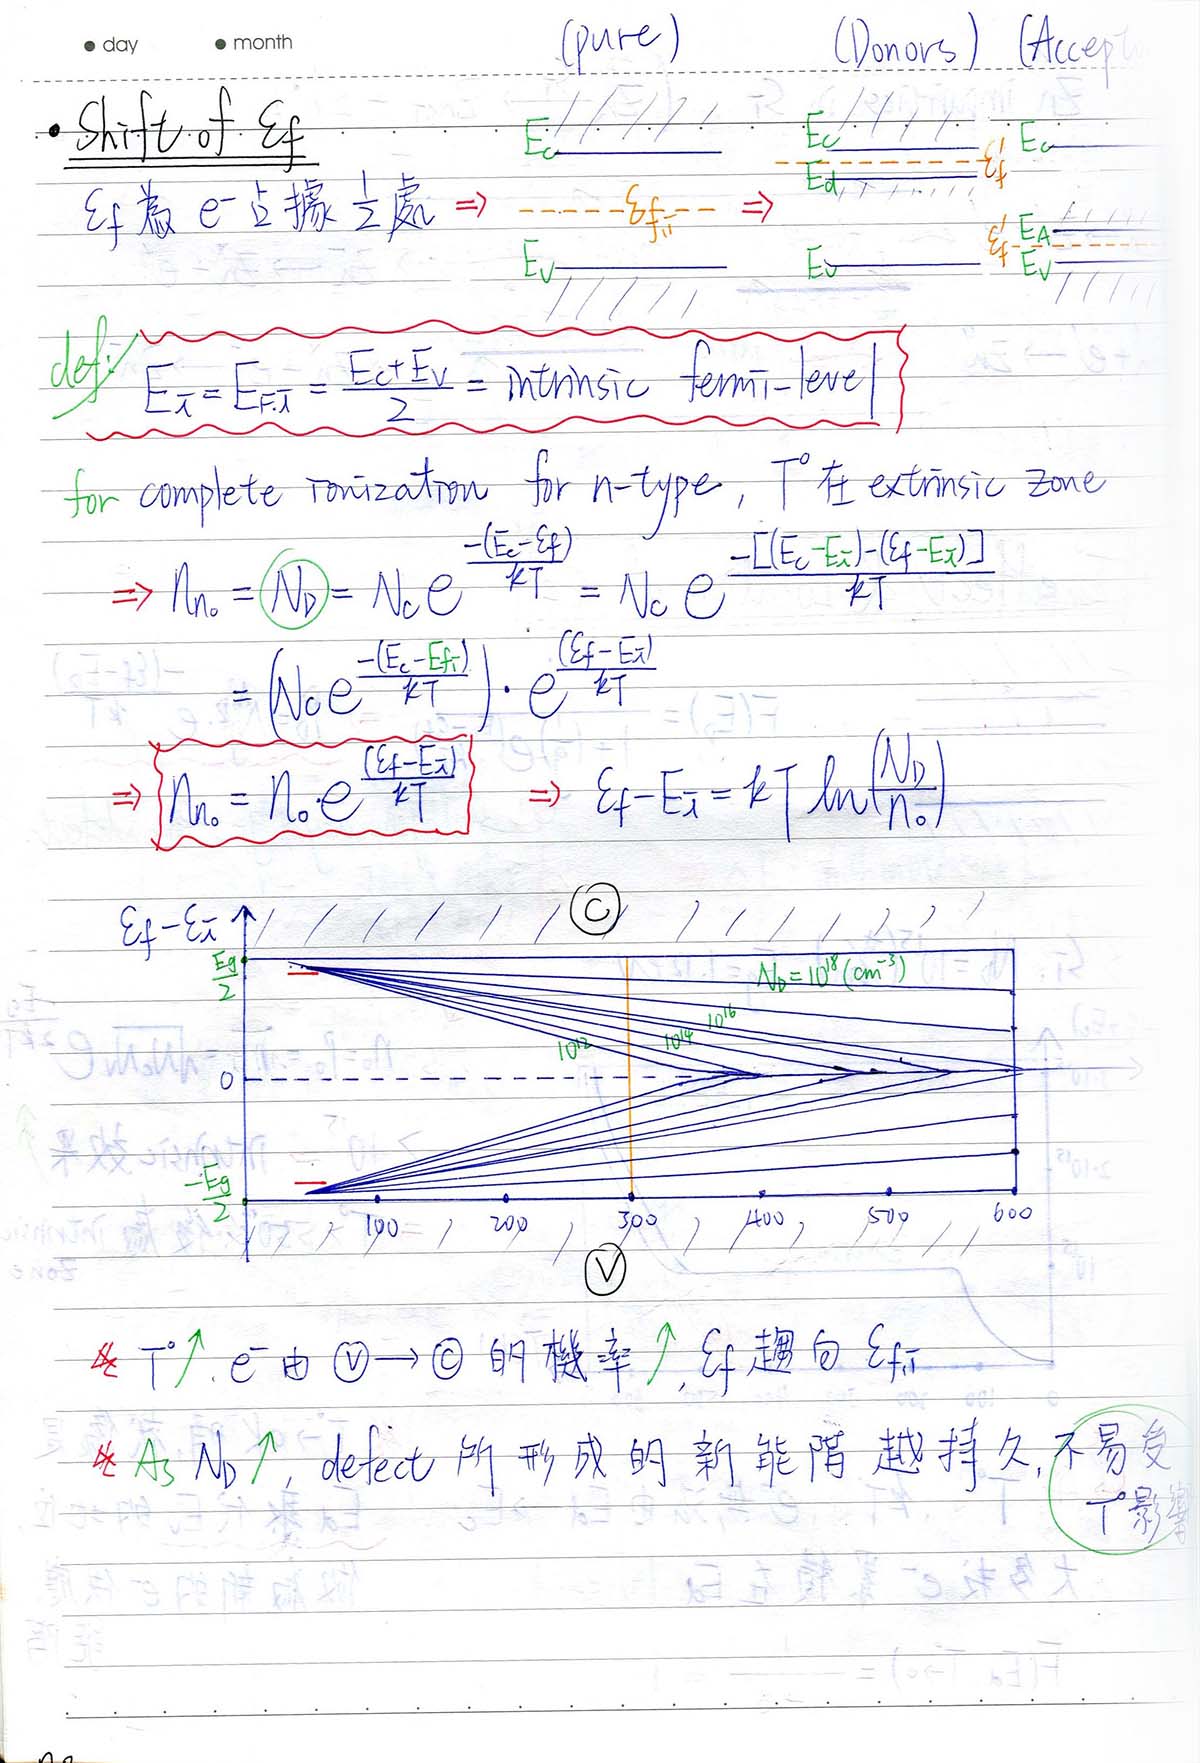 • day • month (pure) (Donors) (Accept
• Shift of εf
Ec Ec Ed εf' Ec
εf 為 e⁻ 占據 1/2 處 ⇒ εf,i ⇒
Ev Ev εf' EA Ev
def: Ei = EF,i = (Ec+Ev)/2 = intrinsic fermi-level
for complete ionization for n-type, T° 在 extrinsic zone
⇒ nn₀ = ND = Nc e^(-(Ec-εf)/kT) = Nc e^(-[(Ec-Ei)-(εf-Ei)]/kT)
= (Nc e^(-(Ec-Efi)/kT)) · e^((εf-Ei)/kT)
⇒ nn₀ = n₀·e^((εf-Ei)/kT) ⇒ εf-Ei = kT ln(ND/n₀)
εf-εi C
Eg/2 ND=10¹⁸(cm⁻³)
10¹² 10¹⁴ 10¹⁶
0
-Eg/2
100 200 300 400 500 600
V
T°↑. e⁻ 由 Ⓥ→Ⓒ 的機率↑, εf 趨向 εf,i
As ND↑, defect 所形成的新能階越持久, 不易受
T°影響